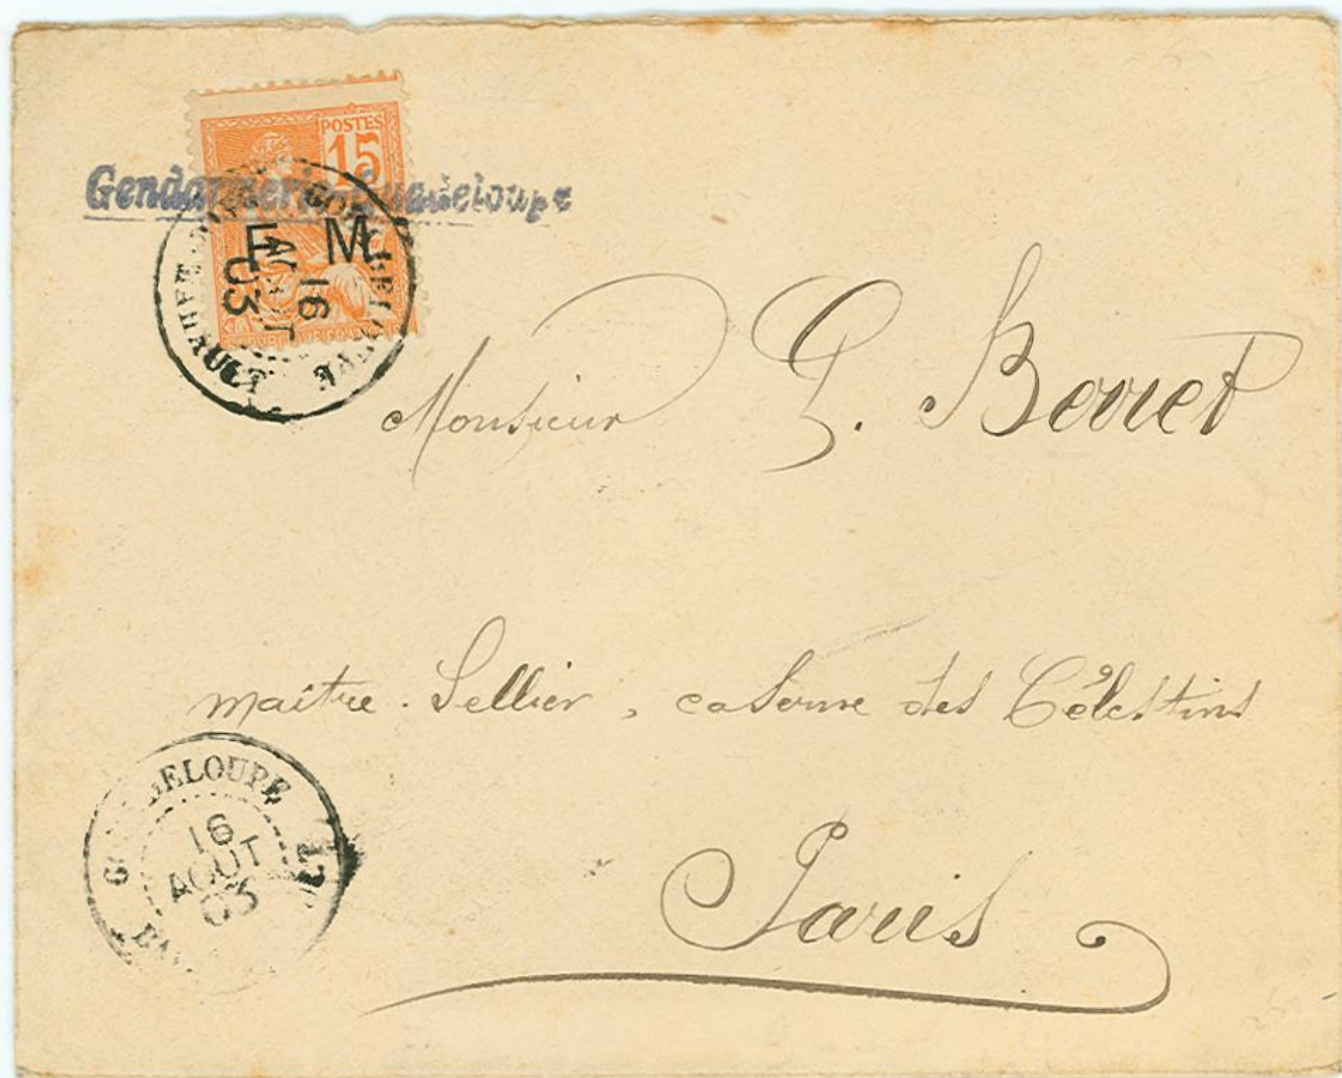 POSTES
15
Gendarmerie Guadeloupe
F M
16
AOUT
03
Monsieur G. Borret
maître-Sellier, caserne des Célestins
GUADELOUPE
16
AOUT
03
Paris